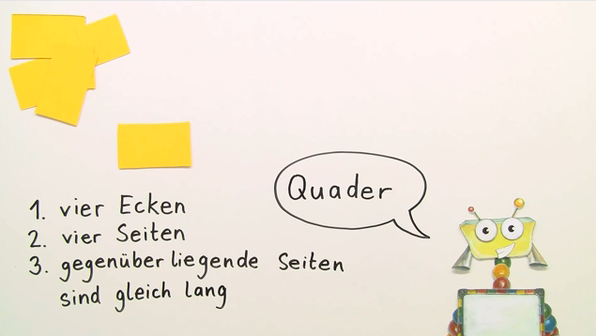 Quader
1. vier Ecken
2. vier Seiten
3. gegenüberliegende Seiten
sind gleich lang